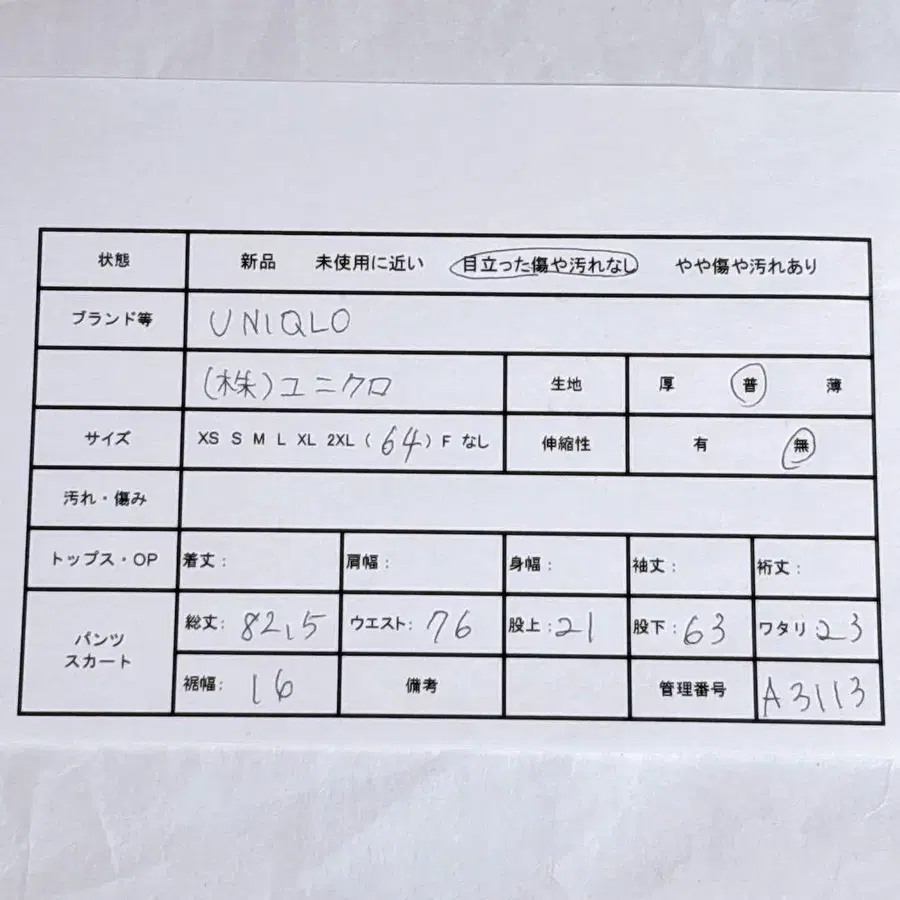 状態 新品 未使用に近い 目立った傷や汚れなし やや傷や汚れあり
ブランド等 UNIQLO
(株)ユニクロ 生地 厚 普 薄
サイズ XS S M L XL 2XL (64) F なし 伸縮性 有 無
汚れ・傷み
トップス・OP 着丈: 肩幅: 身幅: 袖丈: 裄丈:
パンツ
スカート
総丈: 82,5 ウエスト: 76 股上: 21 股下: 63 ワタリ 23
裾幅: 16 備考 管理番号 A3113